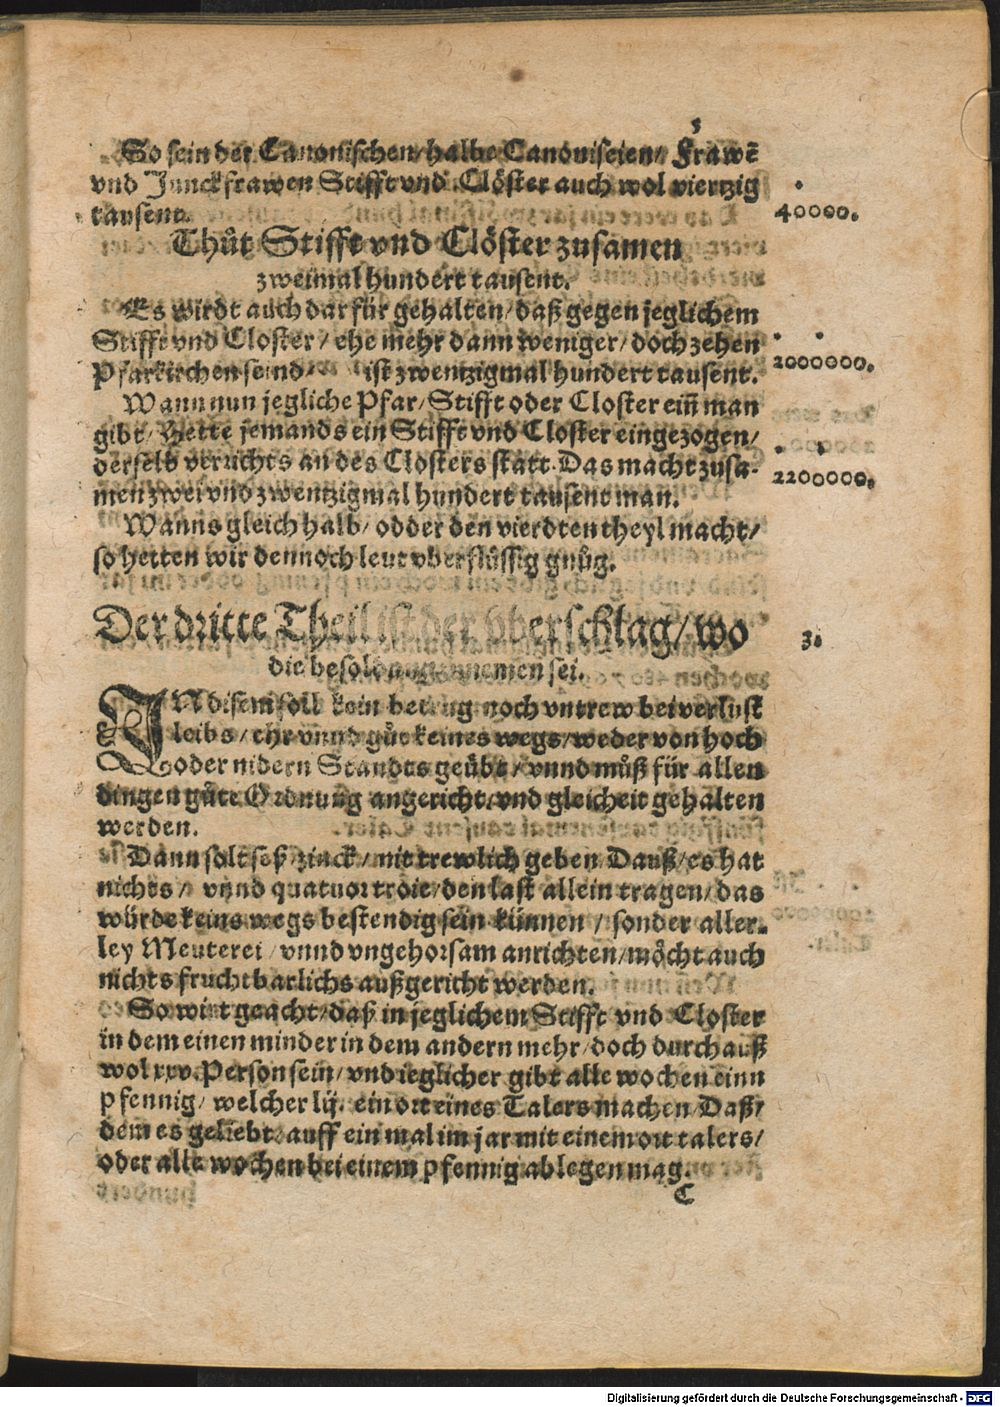 So sein der Canonischen/ halbe Canoniseien/ Frawē
vnd Junckfrawen Stifft vnd Clöster auch wol viertzig
tausent. 40000.
Thůt Stifft vnd Clöster zusamen
zweimal hundert tausent.
Es wirdt auch darfür gehalten/ daß gegen jeglichem
Stifft vnd Closter/ ehe mehr dann weniger/ doch zehen
Pfarkirchen seind/ ist zwentzigmal hundert tausent. 2000000.
Wann nun jegliche Pfar/ Stifft oder Closter eiñ man
gibt/ Hette jemands ein Stifft vnd Closter eingezogen/
derselb verrichts an des Closters statt. Das macht zusa-
men zwei vnd zwentzigmal hundert tausent man. 2200000.
Wanns gleich halb/ odder den vierdten theyl macht/
so hetten wir dennoch leut vberflüssig gnůg.
Der dritte Theil ist der vberschlag/ wo 3.
die besoldung nemen sei.
IN disem soll kein betrug noch vntrew bei verlust
leibs/ ehr vnnd gůt keines wegs/ weder von hoch
oder nidern Standts geübt/ vnnd můß für allen
dingen gůte Ordnung angericht/ vnd gleicheit gehalten
werden.
Dann solt seß zinck/ nit trewlich geben Dauß/ es hat
nichts/ vnnd quatuor troie/ den last allein tragen/ das
würde keins wegs bestendig sein künnen/ sonder aller-
ley Meuterei/ vnnd vngehorsam anrichten/ möcht auch
nichts fruchtbarlichs außgericht werden.
So wirt geacht/ daß in jeglichem Stifft vnd Closter
in dem einen minder in dem andern mehr/ doch durchauß
wol xxv. Person sein/ vnd ieglicher gibt alle wochen einn
pfennig/ welcher lij. ein ort eines Talers machen Daß/
dem es geliebt auff ein mal im jar mit einem ort talers/
oder alle wochen bei einem pfennig ablegen mag.
C
Digitalisierung gefördert durch die Deutsche Forschungsgemeinschaft - DFG